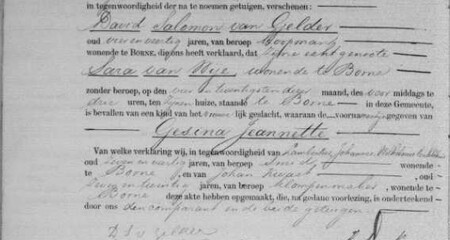 in tegenwoordigheid der na te noemen getuigen, verschenen:
David Salomon van Gelder
oud vier en veertig jaren, van beroep Koopman
wonende te BORNE, die ons heeft verklaard, dat zijne echtgenoote
Sara van Nije wonende te Borne
zonder beroep, op den vier en twintigsten dezer maand, des voor middags te
drie uren, ten zijnen huize, staande te Borne in deze Gemeente,
is bevallen van een kind van het vrouwelijk geslacht, waaraan de voornamen gegeven
Gesina Jeannette
Van welke verklaring wij, in tegenwoordigheid van Lambertus Johannes Wilhelmus
oud zeven en veertig jaren, van beroep Smid
te Borne en van Johan
jaren, van beroep klompenmaker wonende
te Borne deze akte hebben opgemaakt, die, na gedane voorlezing, is onderteekend
door ons den comparant en de beide getuigen
D S v Gelder